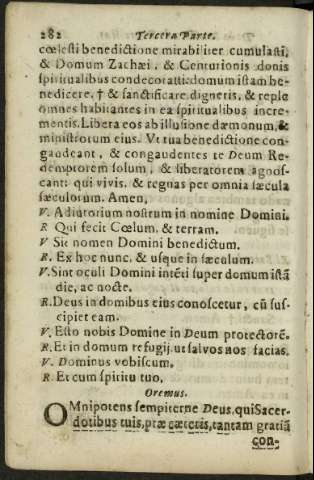 282 Tercera Parte.
cœlesti benedictione mirabiliter cumulasti,
& Domum Zachæi, & Centurionis donis
spiritualibus condecorasti: domum istam be-
nedicere, † & sanctificare digneris, & reple
omnes habitantes in ea spiritualibus incre-
mentis. Libera eos ab illusione dæmonum, &
ministrorum eius. Vt tua benedictione con-
gaudeant, & congaudentes te Deum Re-
demptorem solum, & liberatorem agnos-
cant: qui vivis, & regnas per omnia sæcula
sæculorum. Amen,
V. Adiutorium nostrum in nomine Domini.
R Qui fecit Cœlum, & terram.
V Sit nomen Domini benedictum.
R. Ex hoc nunc, & usque in sæculum.
V. Sint oculi Domini intẽti super domum istã
die, ac nocte.
R. Deus in domibus eius conoscetur, cũ sus-
cipiet eam.
V. Esto nobis Domine in Deum protectorẽ.
R. Et in domum refugij, ut salvos nos facias.
V. Dominus vobiscum,
R. Et cum spiritu tuo,
Oremus.
OMnipotens sempiterne Deus, qui Sacer-
dotibus tuis, præ cæteris, tantam gratiã
con-